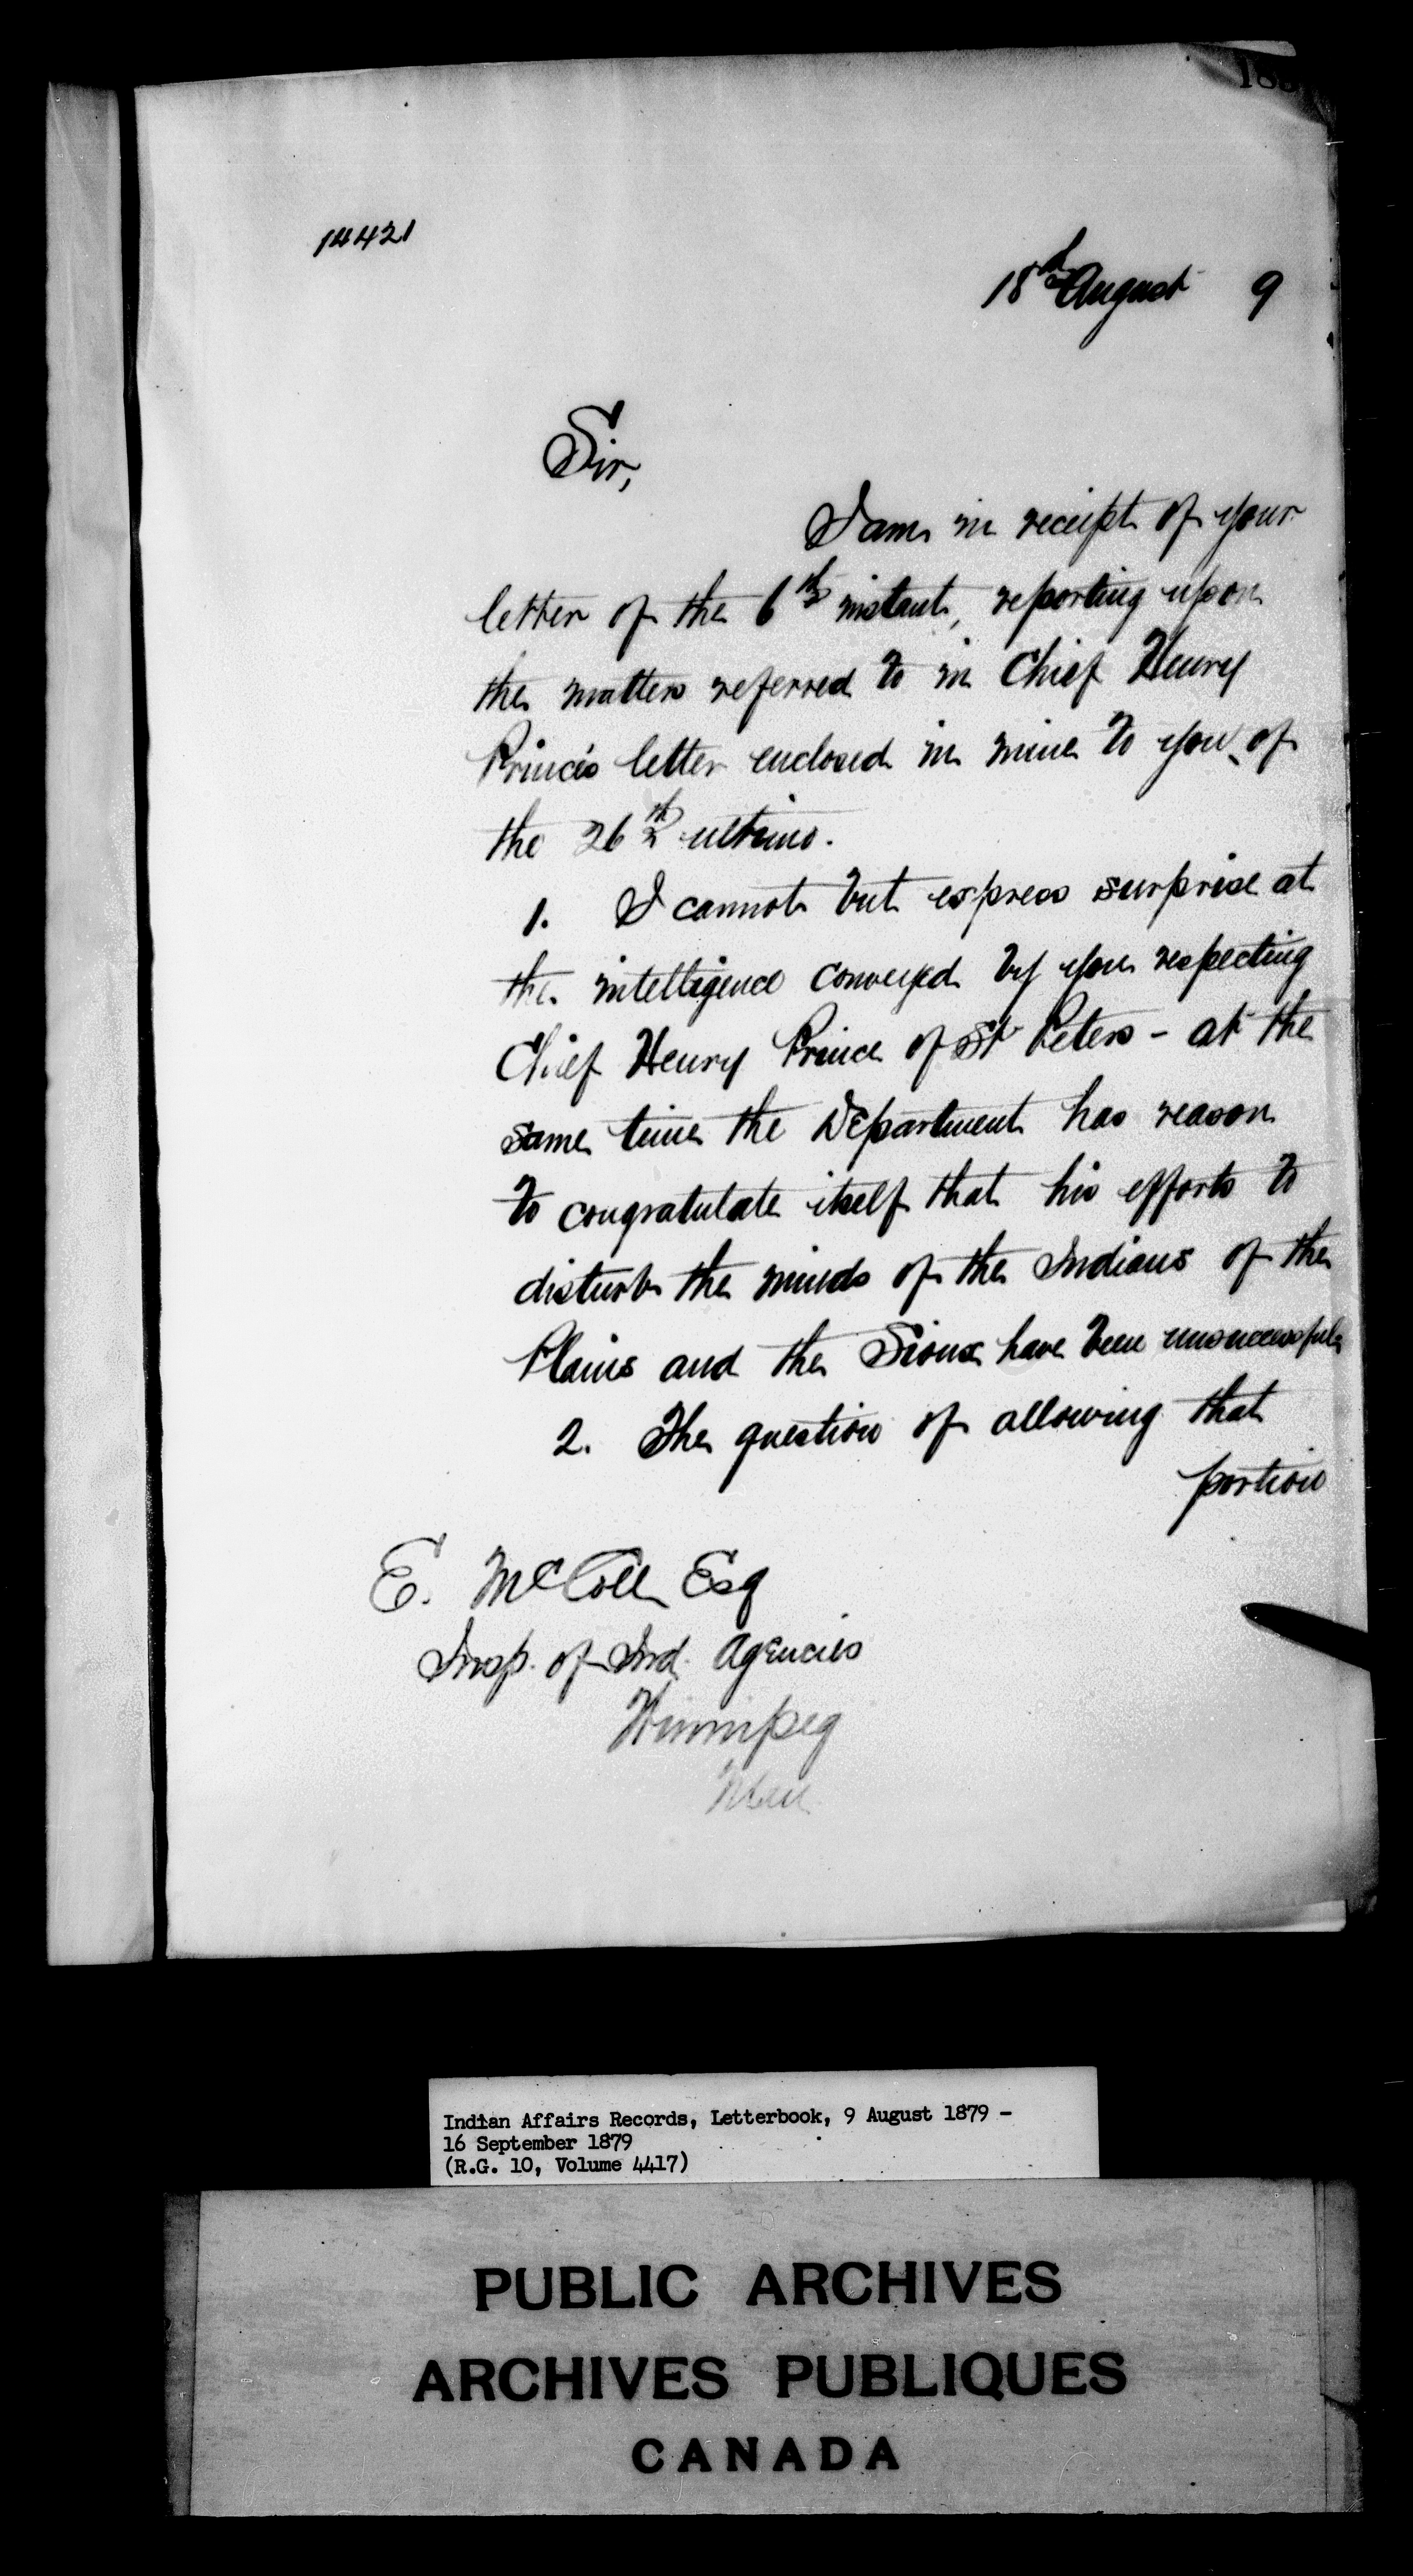 14421
18th August 9
Sir,
I am in receipt of your
letter of the 6th instant, reporting upon
the matters referred to in Chief Henry
Prince's letter enclosed in mine to you of
the 26th ultimo.
1. I cannot but express surprise at
the intelligence conveyed by you respecting
Chief Henry Prince of St Peters - at the
same time the Department has reason
to congratulate itself that his efforts to
disturb the minds of the Indians of the
Plains and the Sioux have been unsuccessful.
2. The question of allowing that
portion
E. McColl Esq
Insp. of Ind. Agencies
Winnipeg
Man
Indian Affairs Records, Letterbook, 9 August 1879 -
16 September 1879
(R.G. 10, Volume 4417)
PUBLIC ARCHIVES
ARCHIVES PUBLIQUES
CANADA